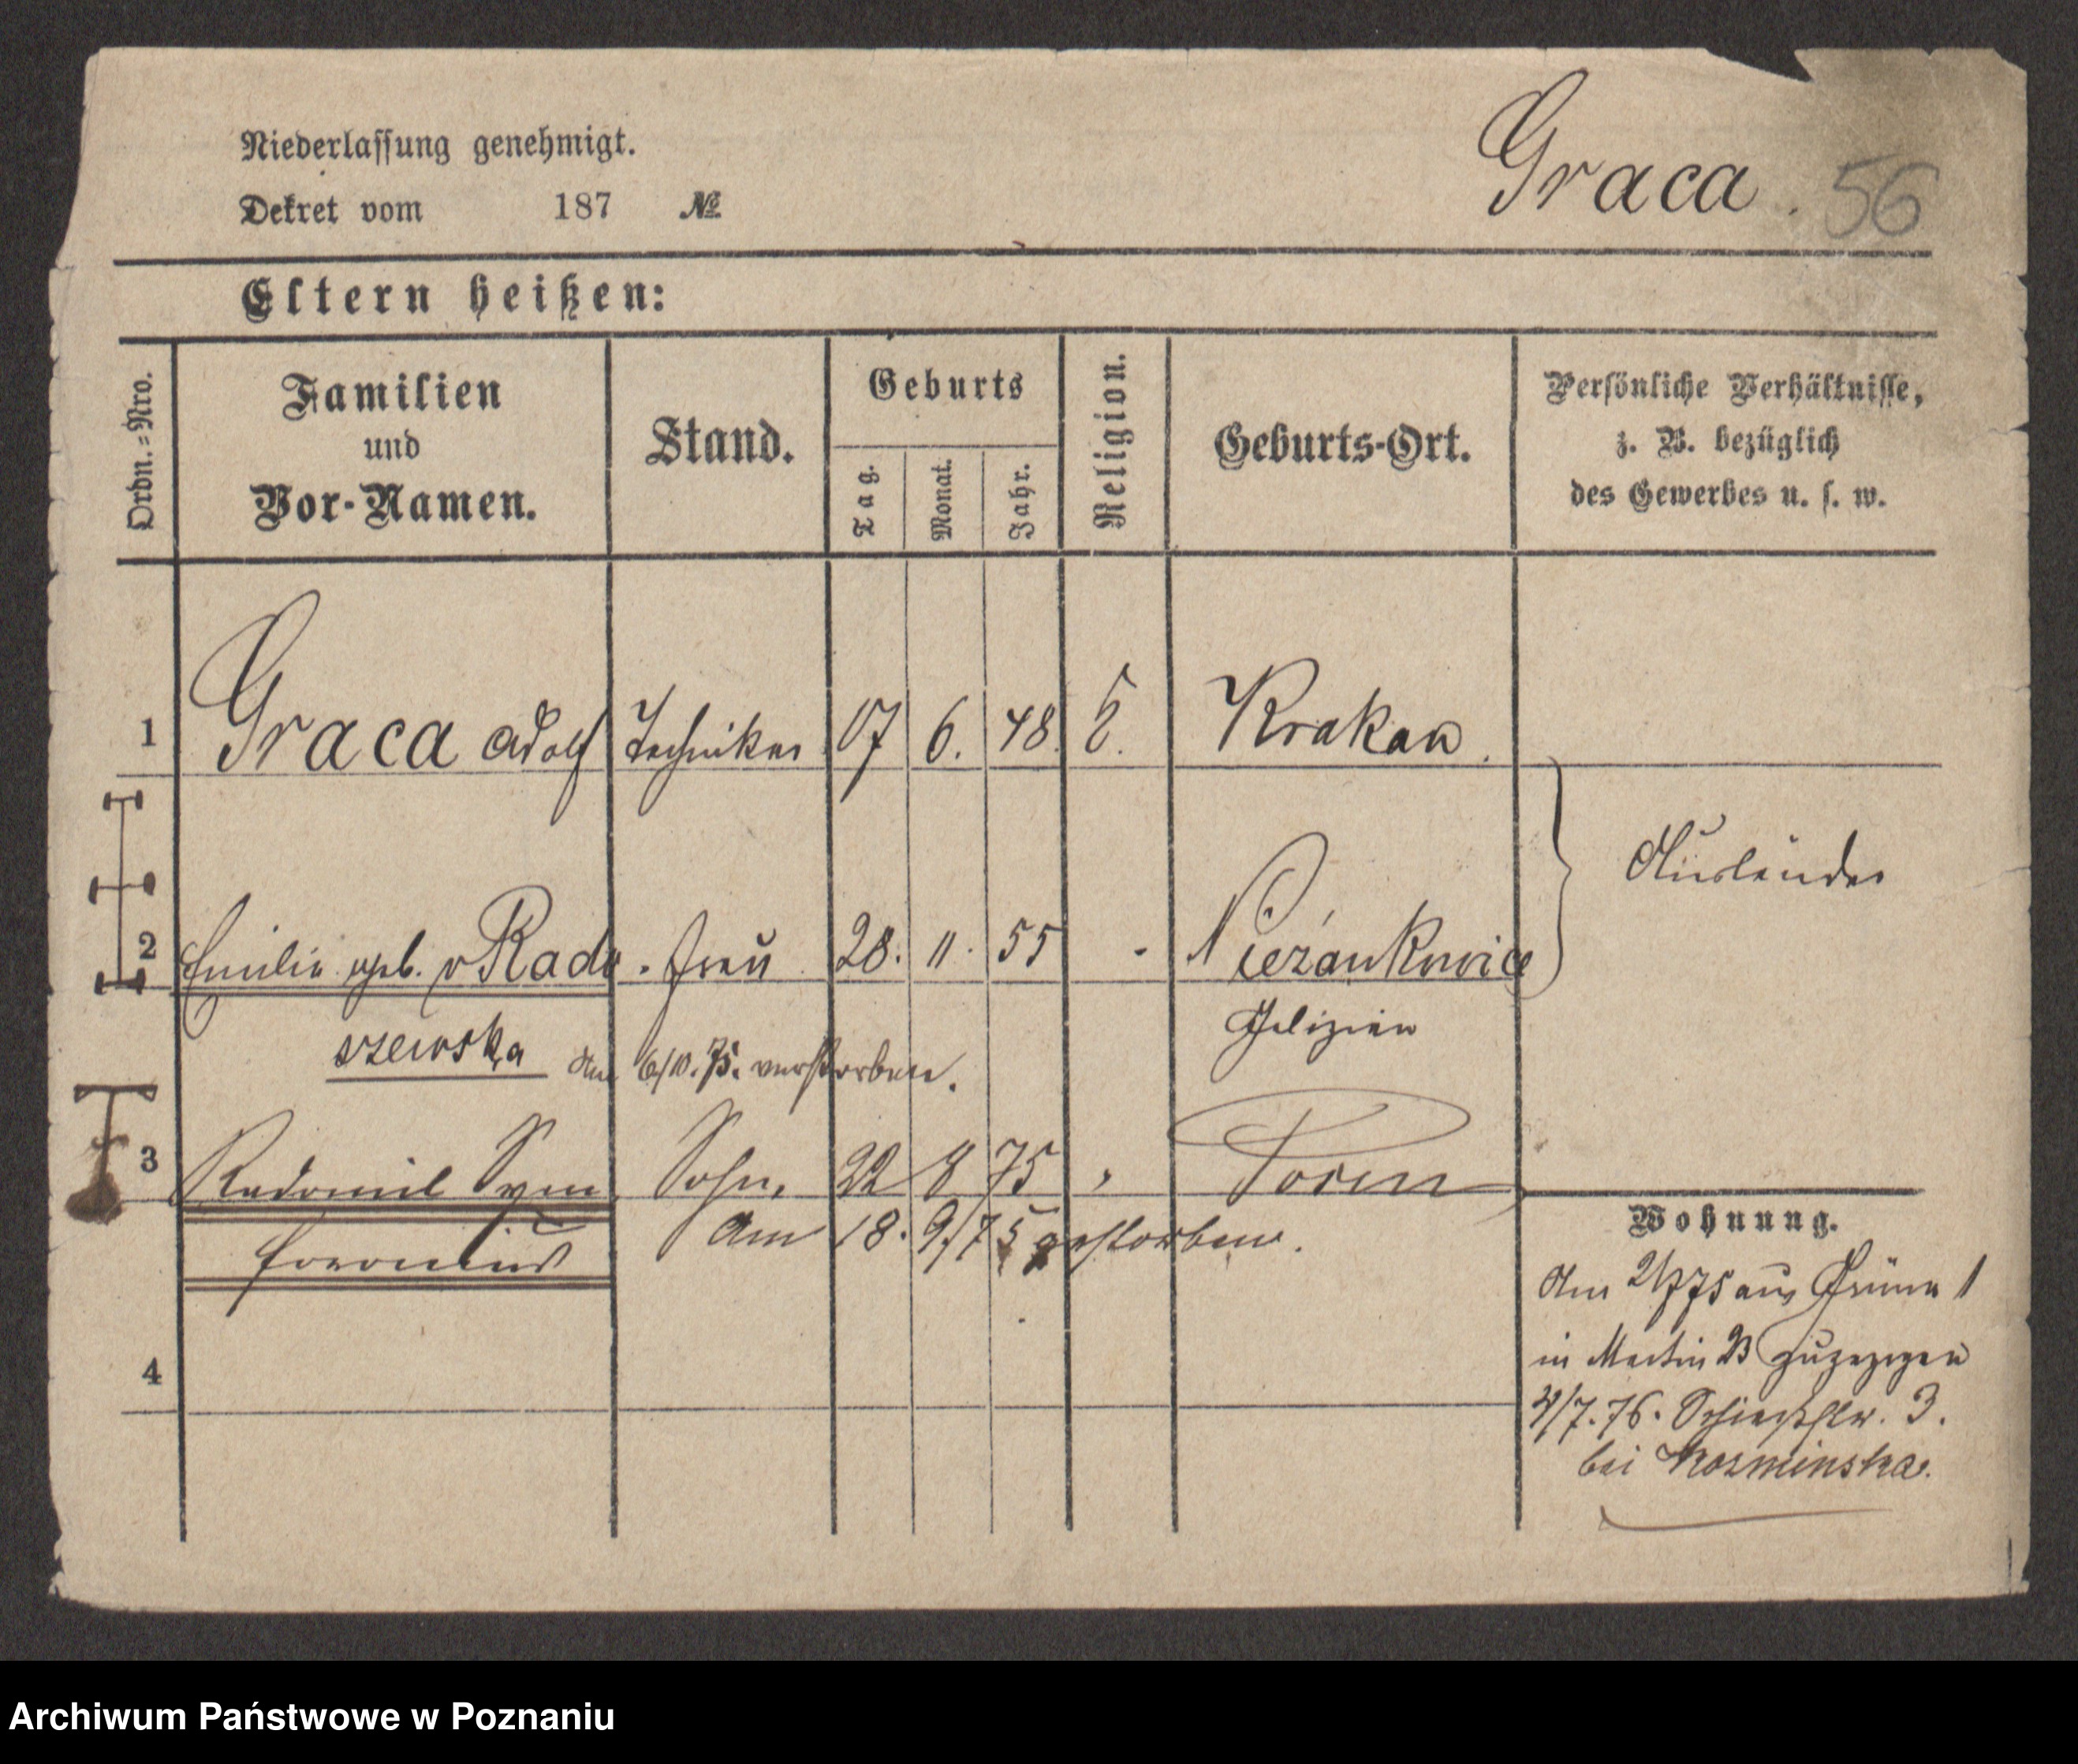 Niederlassung genehmigt.
Graca. 56
Dekret vom 187 №
Eltern heißen:
Ordn.-Nro.
Familien
und
Vor-Namen.
Stand.
Geburts
Tag.
Monat.
Jahr.
Religion.
Geburts-Ort.
Persönliche Verhältnisse,
z. B. bezüglich
des Gewerbes u. s. w.
1 Graca Adolf Techniker 17 6. 48. Krakau.
Ausländer
2 Emilie geb. v Rado Frau 28. 11. 55 Nieżankowice
szewska Am 6/10.75. verstorben.
Galizien
3 Radomil Sohn, 22 8 75 Posen
Am 18. 9/75 gestorben.
Wohnung.
Am 2/7 75 aus
in Martin 23 zugezogen
/7.76. 3.
bei Kozminska.
4
Archiwum Państwowe w Poznaniu